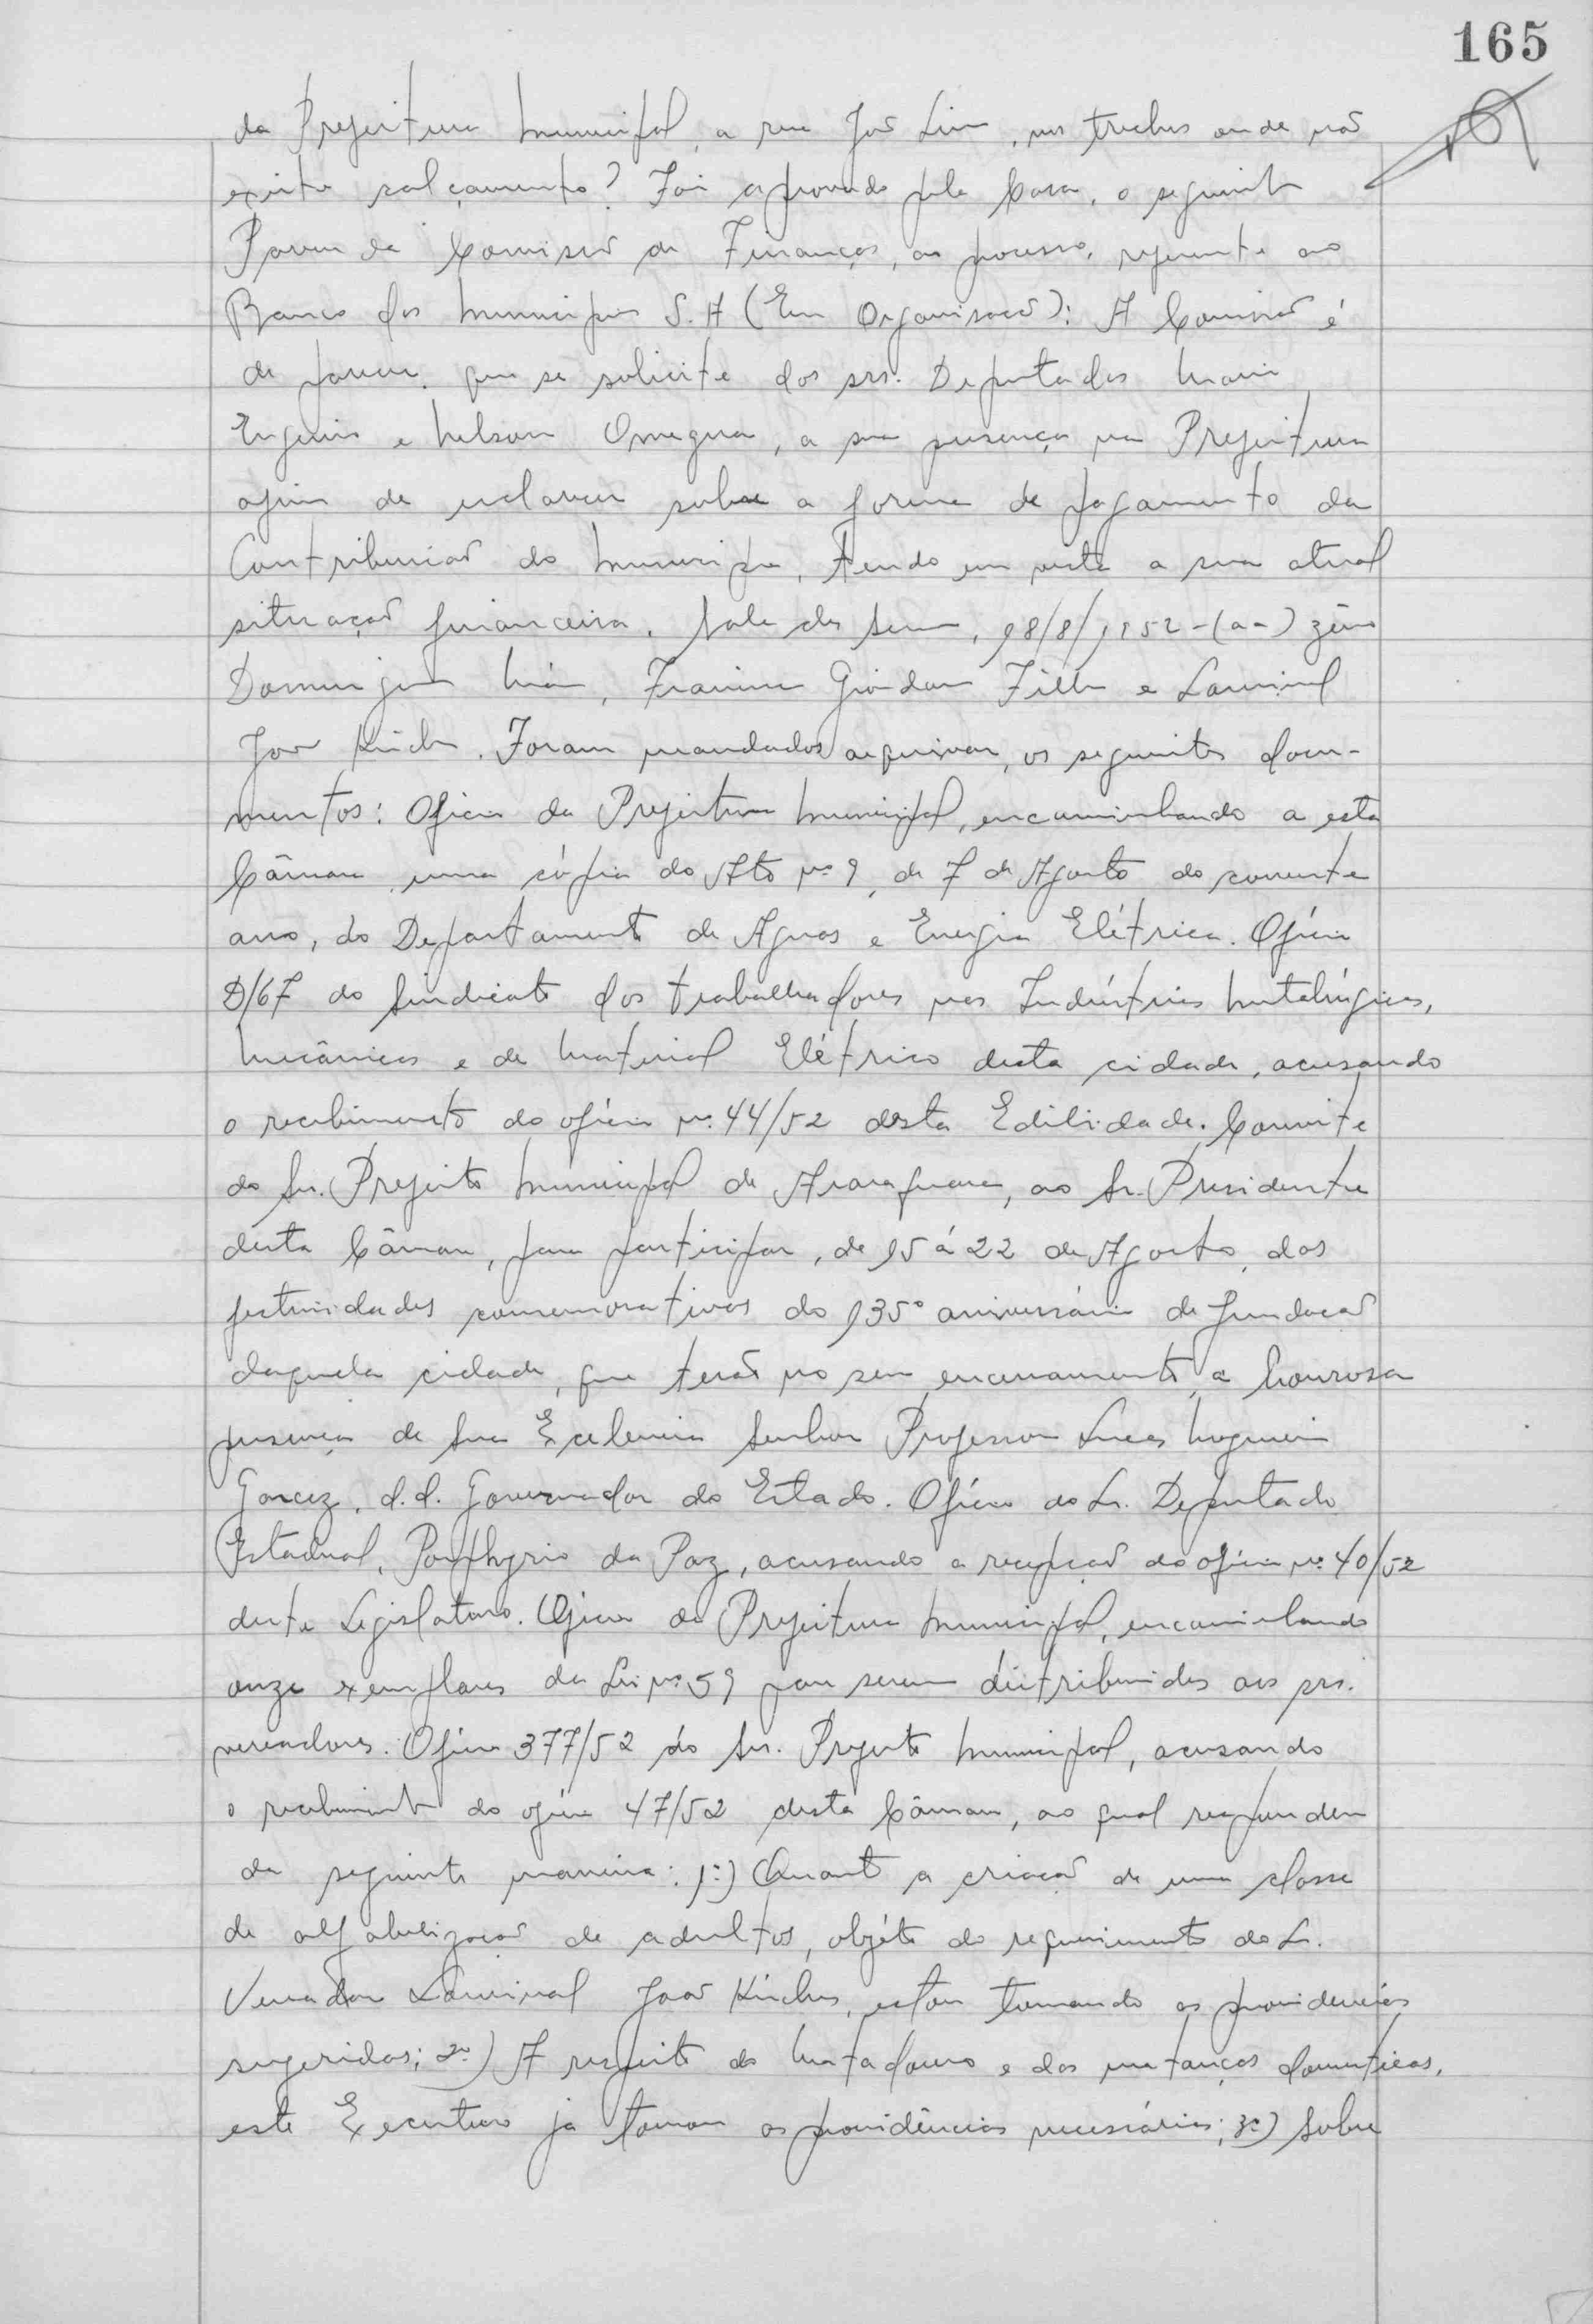 165
da Prefeitura Municipal, a rua José Lins, nos trechos onde não
existe calçamento? Foi aprovado pela Casa, o seguinte
Parecer da Comissão de Finanças, ao processo, referente ao
Banco dos Municipios S.A (Em Organisação): A Comissão é
de parecer, que se solicite dos srs. Deputados Mario
Eugenio e Nelson Omegna, a sua presença na Prefeitura
afim de esclarecer sobre a forma de pagamento da
Contribuição do Municipio, tendo em vista a sua atual
situação financeira. Sala das Sessões, 18/8/1952 - (a a)
Domingos, Francisco Giordano Filho e Lourival
João Kirche. Foram mandados arquivar, os seguintes docu-
mentos: Oficio da Prefeitura Municipal, encaminhando a esta
Câmara, uma cópia do Ato nº 9, de 7 de Agosto do corrente
ano, do Departamento de Aguas e Energia Elétrica. Ofício
D/67 do Sindicato dos trabalhadores nas Indústrias Metalúrgicas,
Mecânicas e de Material Elétrico desta cidade, acusando
o recebimento do ofício nº 44/52 desta Edilidade. Convite
do Sr. Prefeito Municipal de Araraquara, ao Sr. Presidente
desta Câmara, para participar, de 15 á 22 de Agosto, das
festividades comemorativas do 135º aniversário de fundação
daquela cidade, que terão no seu encerramento, a honrosa
presença de Sua Excelencia Senhor Professor Lucas Nogueira
Garcez, d.d. Governador do Estado. Ofício do Sr. Deputado
Estadual, Porphyrio da Paz, acusando a recepção do ofício nº 40/52
deste Legislativo. Oficio da Prefeitura Municipal, encaminhando
onze exemplares da Lei nº 59 para serem distribuidos aos srs.
vereadores. Ofício 377/52 do Sr. Prefeito Municipal, acusando
o recebimento do ofício 47/52 desta Câmara, ao qual respondeu
da seguinte maneira: 1º) Quanto a criação de uma classe
de alfabetização de adultos, objéto do requerimento do Sr.
Vereador Lourival João Kirche, estou tomando as providencias
sugeridas; 2º) A respeito do Matadouro e das matanças domesticas,
este Executivo ja tomou as providências necessárias; 3º) Sobre